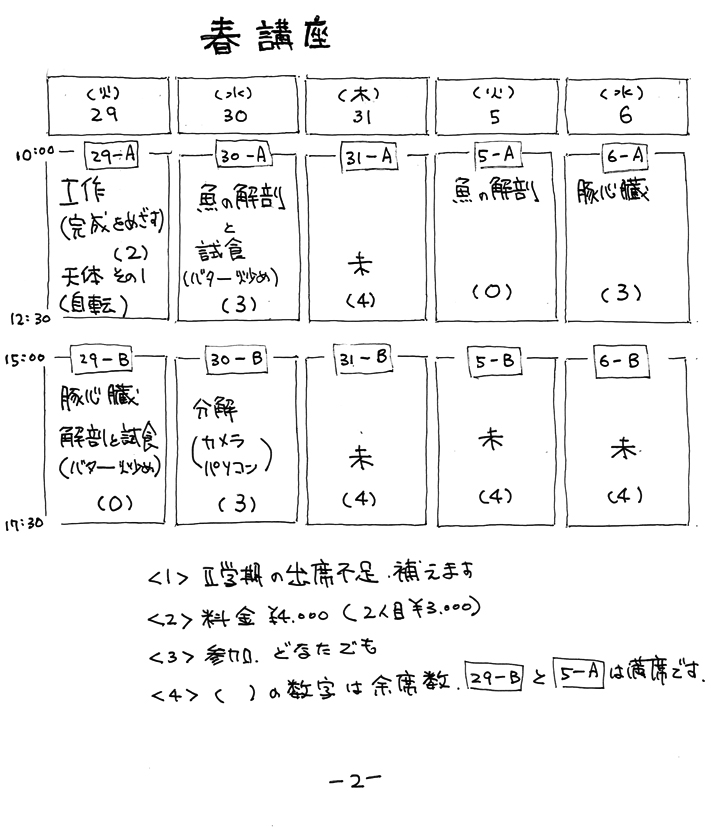 春講座
(火) (水) (木) (火) (水)
29 30 31 5 6
10:00 29-A 30-A 31-A 5-A 6-A
工作 魚の解剖 魚の解剖 豚心臓
(完成をめざす) と
(2) 試食 未
天体 その1 (バター炒め)
(自転) (3) (4) (0) (3)
12:30
15:00 29-B 30-B 31-B 5-B 6-B
豚心臓 分解
解剖と試食 (カメラ 未 未 未
(バター炒め) パソコン)
(0) (3) (4) (4) (4)
17:30
<1> II学期の出席不足.補えます
<2> 料金 ¥4.000 (2人目¥3.000)
<3> 参加. どなたでも
<4> ( )の数字は余席数. 29-B と 5-A は満席です.
-2-